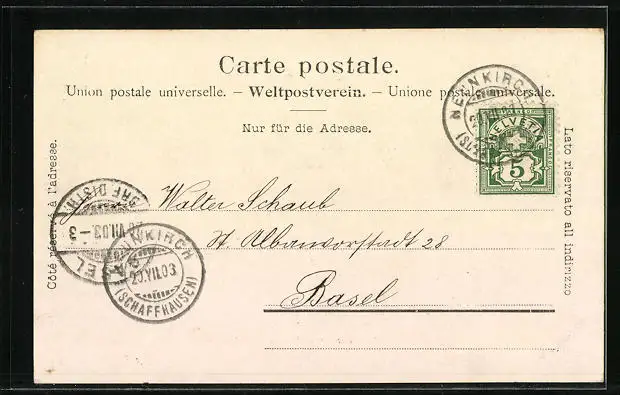 Carte postale.
Union postale universelle. – Weltpostverein. – Unione postale universale.
Nur für die Adresse.
Côté réservé à l'adresse.
Lato riservato all indirizzo
NEUNKIRCH
HELVETIA
5
Walter Schaub
St. Albanvorstadt 28
Basel
BRF. DISTR.
VII.03 – 3
NEUNKIRCH
20.VII.03
(SCHAFFHAUSEN)